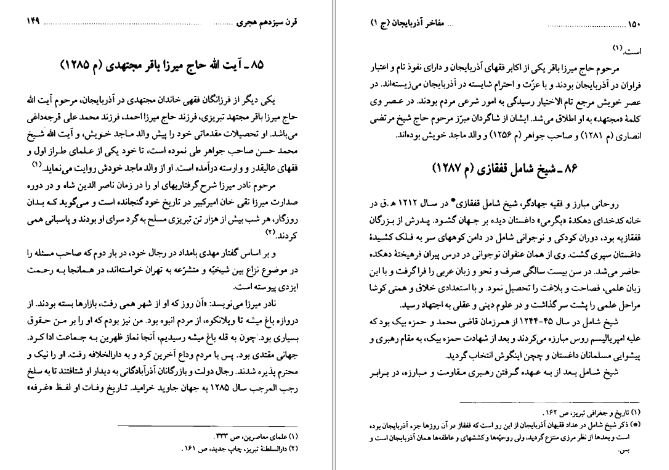 قرن سیزدهم هجری ........ ۱۴۹
۸۵ ـ آیت الله حاج میرزا باقر مجتهدی (م ۱۲۸۵)
یکی دیگر از فرزانگان فقهی خاندان مجتهدی در آذربایجان، مرحوم آیت الله
حاج میرزا باقر مجتهد تبریزی، فرزند حاج میرزا احمد، فرزند محمد علی قرجه‌داغی
می‌باشد. او تحصیلات مقدماتی خود را پیش والد ماجد خویش، و آیت الله شیخ
محمد حسن صاحب جواهر طی نموده است، تا خود یکی از علمای طراز اول و
فقهای عالیقدر و وارسته درآمده است. او از والد ماجد خودش روایت می‌نماید.(۱)
مرحوم نادر میرزا شرح گرفتاریهای او را در زمان ناصر الدین شاه و در دوره
صدارت میرزا تقی خان امیرکبیر در تاریخ خود گنجانده است و می‌گوید که بدان
روزگار، هر شب بیش از هزار تن تبریزی مسلح به گرد سرای او بودند و پاسبانی همی
کردند.(۲)
و بر اساس گفتار مهدی بامداد در رجال خود، در بار دوم که صاحب مسئله را
در موضوع نزاع بین شیخیّه و متشرّعه به تهران خواسته‌اند، در همانجا به رحمت
ایزدی پیوسته است.
نادر میرزا می‌نویسد: «آن روز که او از شهر همی رفت، بازارها بسته بودند. از
دروازه باغ میشه تا ویلانکوه، از مردم انبوه بود. من نیز بودم که او را بر من حقوق
بسیاری بود. چون به قله باغ میشه رسیدیم، آنجا نماز ظهرین به جماعت ادا کرد.
جهانی مقتدی بود. پس با مردم وداع آخرین کرد و به دارالخلافه رفت. او را نیک و
محترم پذیره شدند. رجال دولت و بازرگانان آذرآبادگانی به دیدار او شتافتند تا به سلخ
رجب المرجب سال ۱۲۸۵ به جهان جاوید خرامید. تاریخ وفات او لفظ «غرفه»
(۱) علمای معاصرین، ص ۳۳۳.
(۲) دارالسلطنة تبریز، چاپ جدید، ص ۱۶۱.
۱۵۰ ........ مفاخر آذربایجان (ج ۱)
است.(۱)
مرحوم حاج میرزا باقر یکی از اکابر فقهای آذربایجان و دارای نفوذ تام و اعتبار
فراوان در آذربایجان بودند و با عزّت و احترام شایسته در آذربایجان می‌زیسته‌اند. در
عصر خویش مرجع تام الاختیار رسیدگی به امور شرعی مردم بودند. در عصر وی
کلمهٔ «مجتهد» به او اطلاق می‌شد. ایشان از شاگردان مبرّز مرحوم حاج شیخ مرتضی
انصاری (م ۱۲۸۱) و صاحب جواهر (م ۱۲۵۶) و والد ماجد خویش بوده‌اند.
۸۶ ـ شیخ شامل قفقازی (م ۱۲۸۷)
روحانی مبارز و فقیه جهادگر، شیخ شامل قفقازی* در سال ۱۲۱۲ ه‍.ق در
خانه کدخدای دهکدهٔ «یگرمی» داغستان دیده بر جهان گشود. پدرش از بزرگان
قفقازیه بود، دوران کودکی و نوجوانی شامل در دامن کوههای سر به فلک کشیدهٔ
داغستان سپری گشت. وی از همان عنفوان نوجوانی در درس پیران فرهیختهٔ دهکده
حاضر می‌شد. در سن بیست سالگی صرف و نحو و زبان عربی را فرا گرفت و با این
زبان علمی، فصاحت و بلاغت را تحصیل نمود. و با استعدادی خلاق و همتی کوشا
مراحل علمی را پشت سر گذاشت و در علوم دینی و عقلی به اجتهاد رسید.
شیخ شامل در سال ۴۵-۱۲۴۴ از همرزمان قاضی محمد و حمزه بیک بود که
علیه امپریالیسم روس مبارزه می‌کردند و بعد از شهادت حمزه بیک، به مقام رهبری و
پیشوایی مسلمانان داغستان و چچن اینگوش انتخاب گردید.
شیخ شامل بعد از به عهده گرفتن رهبری مقاومت و مبارزه، در برابر
(۱) تاریخ و جغرافی تبریز، ص ۱۶۲.
(*) ذکر شیخ شامل در عداد فقیهان آذربایجان از این رو است که قفقاز در آن روزها جزء آذربایجان بوده
است و بعدها از نظر مرزی منتزع گردید، ولی روحیّه‌ها و کششهای و عاطفه‌ها همان آذربایجان است و
بس.